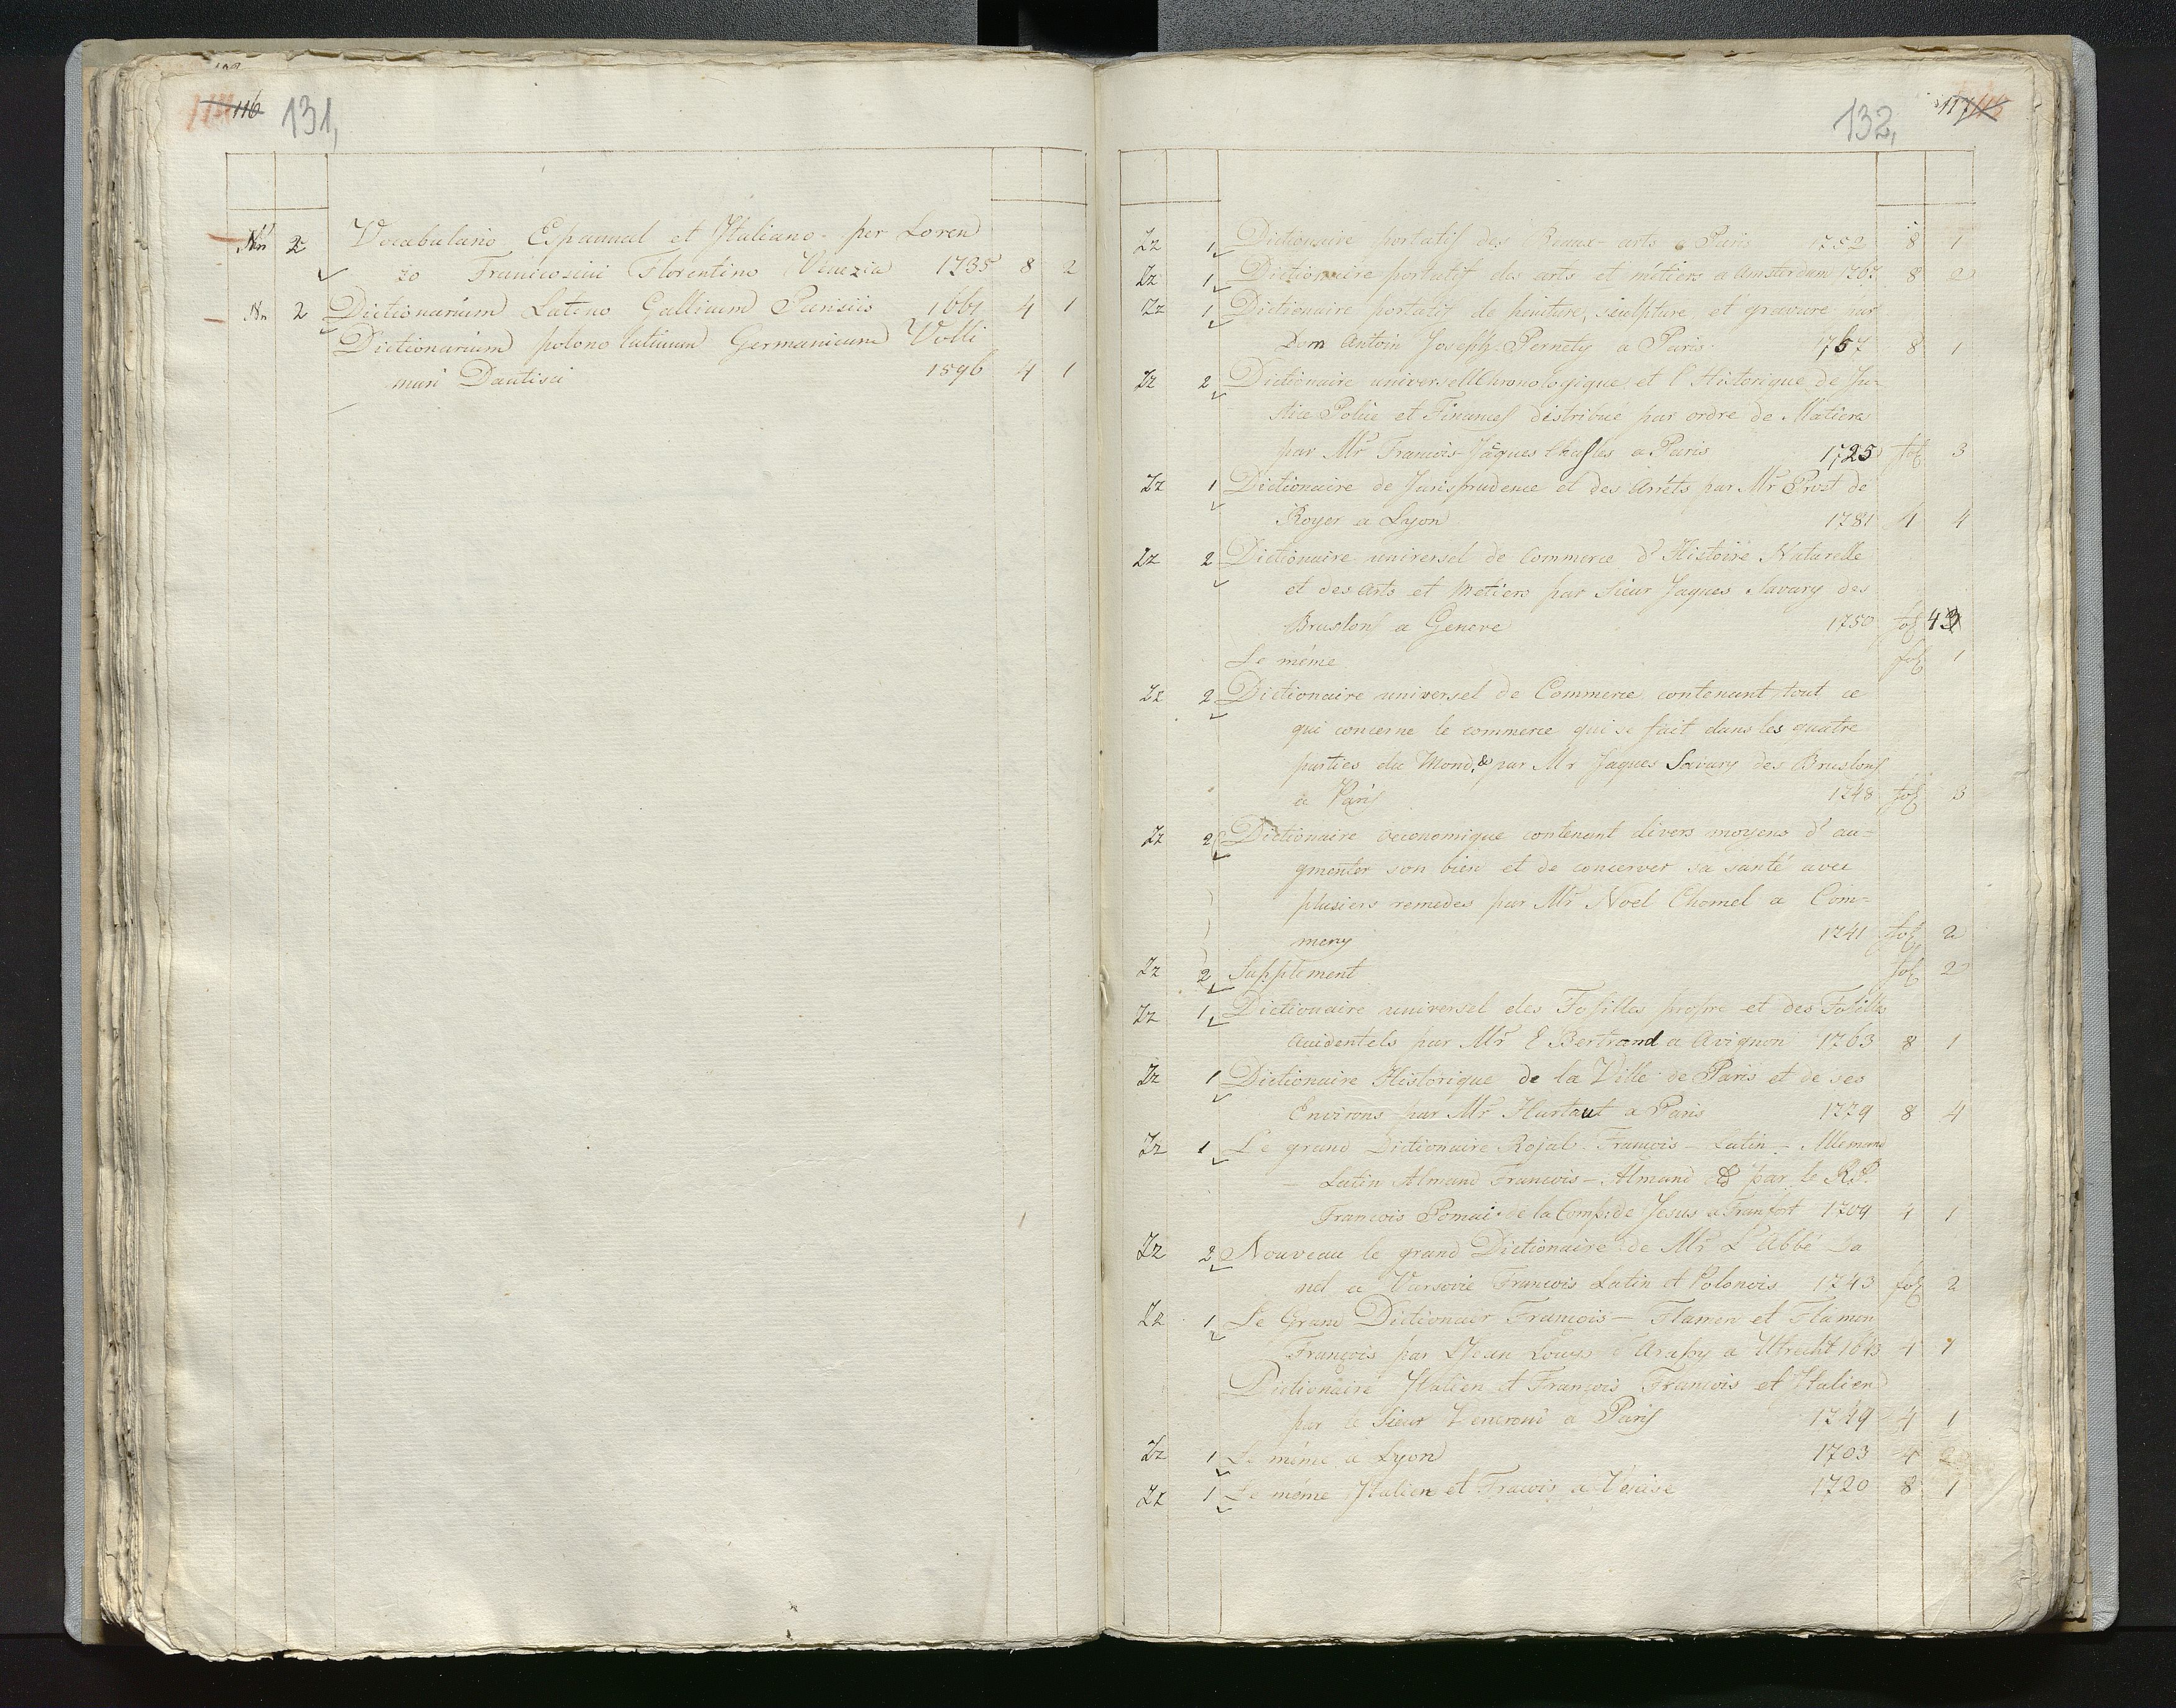 116 131,
Nn 2 Vocabulario Espannal et Italiano per Loren
zo Franicosini Florentino Venezia 1735 8 2
Nn 2 Dictionarium Latino Gallicum Parisiis 1661 4 1
Dictionarium polono latinum Germanicum Volk
mari Dantisci 1596 4 1
132, 117
Zz 1 Dictionaire portatif des Beaux-arts a Paris 1752 8 1
Zz 1 Dictionaire portatif des arts et métiers a Amsterdam 1767 8 2
Zz 1 Dictionaire portatif de peinture, sculpture, et gravure par
Dom Antoin Joseph Pernety a Paris 1757 8 1
Zz 2 Dictionaire universell Chronologique et l'Historique de Ju-
stice Police et Finances distribué par ordre de Matieres
par Mr Francois Jâques Chasles a Paris 1725 fol 3
Zz 1 Dictionaire de Jurisprudence et des Arrêts par Mr Prost de
Royer a Lyon 1781 4 4
Zz 2 Dictionaire universel de Commerce d'Histoire Naturelle
et des Arts et Metiers par Sieur Jaques Savary des
Bruslons a Geneve 1750 fol 4
Le même fol 1
Zz 2 Dictionaire universel de Commerce contenant tout ce
qui concerne le commerce qui se fait dans les quatre
parties du Mond, & par Mr Jaques Savary des Bruslons
a Paris 1748 fol 3
Zz 2 Dictionaire oeconomique contenant divers moyens d'au-
gmenter son bien et de concerver sa santé avec
plusiers remedes par Mr Noel Chomel a Com-
mercy 1741 fol 2
Zz 2 Supplement fol 2
Zz 1 Dictionaire universel des Fossilles propre et des Fossilles
Accidentels par Mr E Bertrand a Avignon 1763 8 1
Zz 1 Dictionaire Historique de la Ville de Paris et de ses
Environs par Mr Hurtaut a Paris 1779 8 4
Zz 1 Le grand Dictionaire Rojal Francois - Latin - Allemand
- Latin Almand Francois - Almand & par le R.P.
Francois Pomai de la Comp: de Jesus a Franfort 1709 4 1
Zz 2 Nouveau le grand Dictionaire de Mr L'Abbé Da
nel a Varsovie Francois Latin et Polonois 1743 fol 2
Zz 1 Le Grand Dictionair Francois - Flamen et Flamen
François par Jean Louys d'Arassy a Utrecht 1643 4 1
Dictionaire Italien et Francois Francois et Italien
par le Sieur Veneroni a Paris 1749 4 1
Zz 1 Le même a Lyon 1703 4 2
Zz 1 Le même Italien et Fracois a Venise 1720 8 1